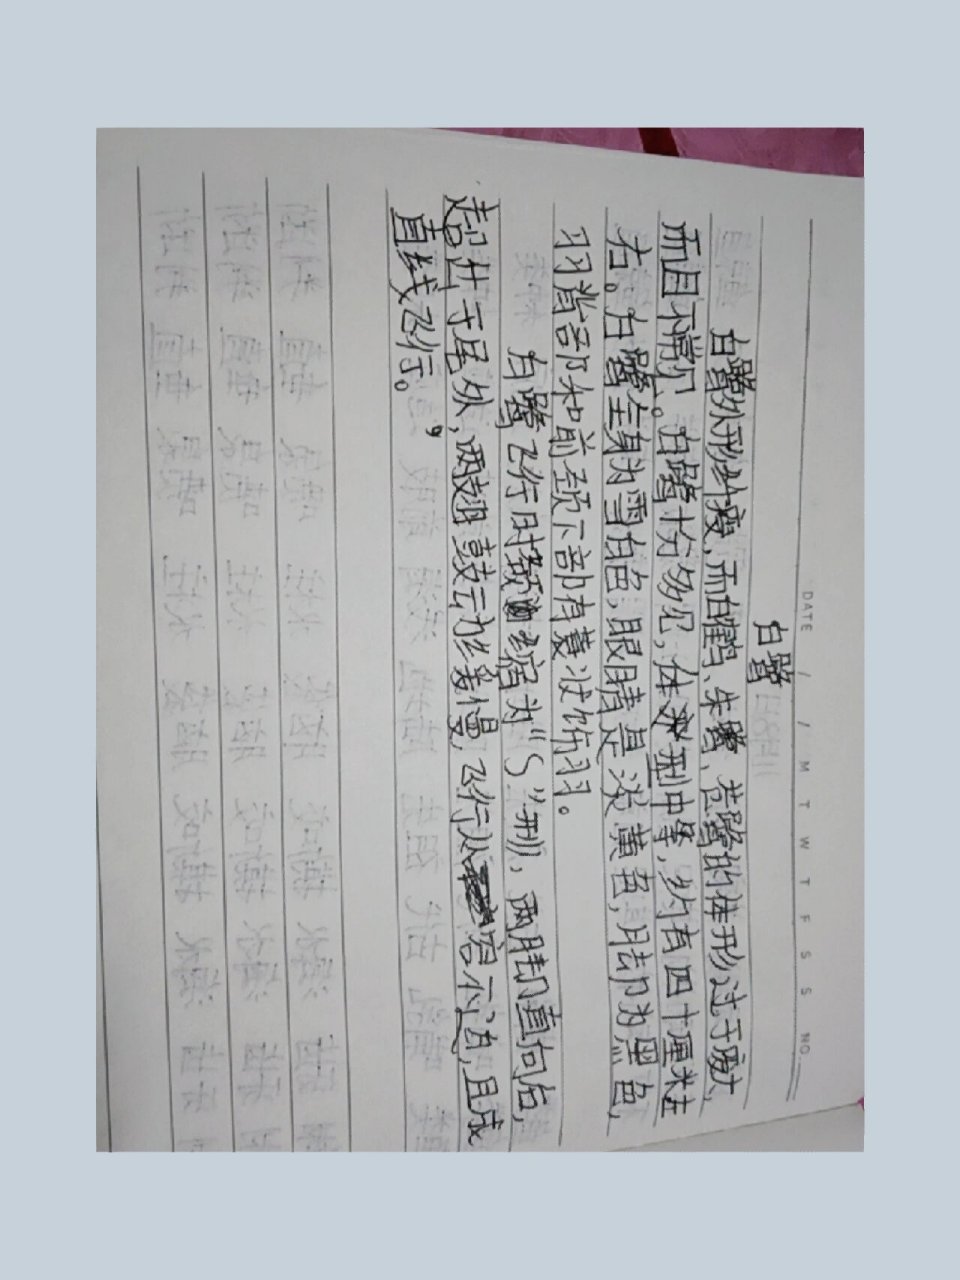 DATE / / M T W T F S S NO.
白鹭
白鹭外形纤瘦，而白鹤、朱鹭、苍鹭的体形过于庞大，
而且不常见。白鹭十分多见，体型中等，约有四十厘米左
右。白鹭全身为雪白色，眼睛是淡黄色，脚为黑色，
背部和前颈下部有蓑状饰羽。
白鹭飞行时颈缩为“S”形，两脚直向后，
超出于尾外，两翅鼓动缓慢，飞行从容不迫，且成
直线飞行。